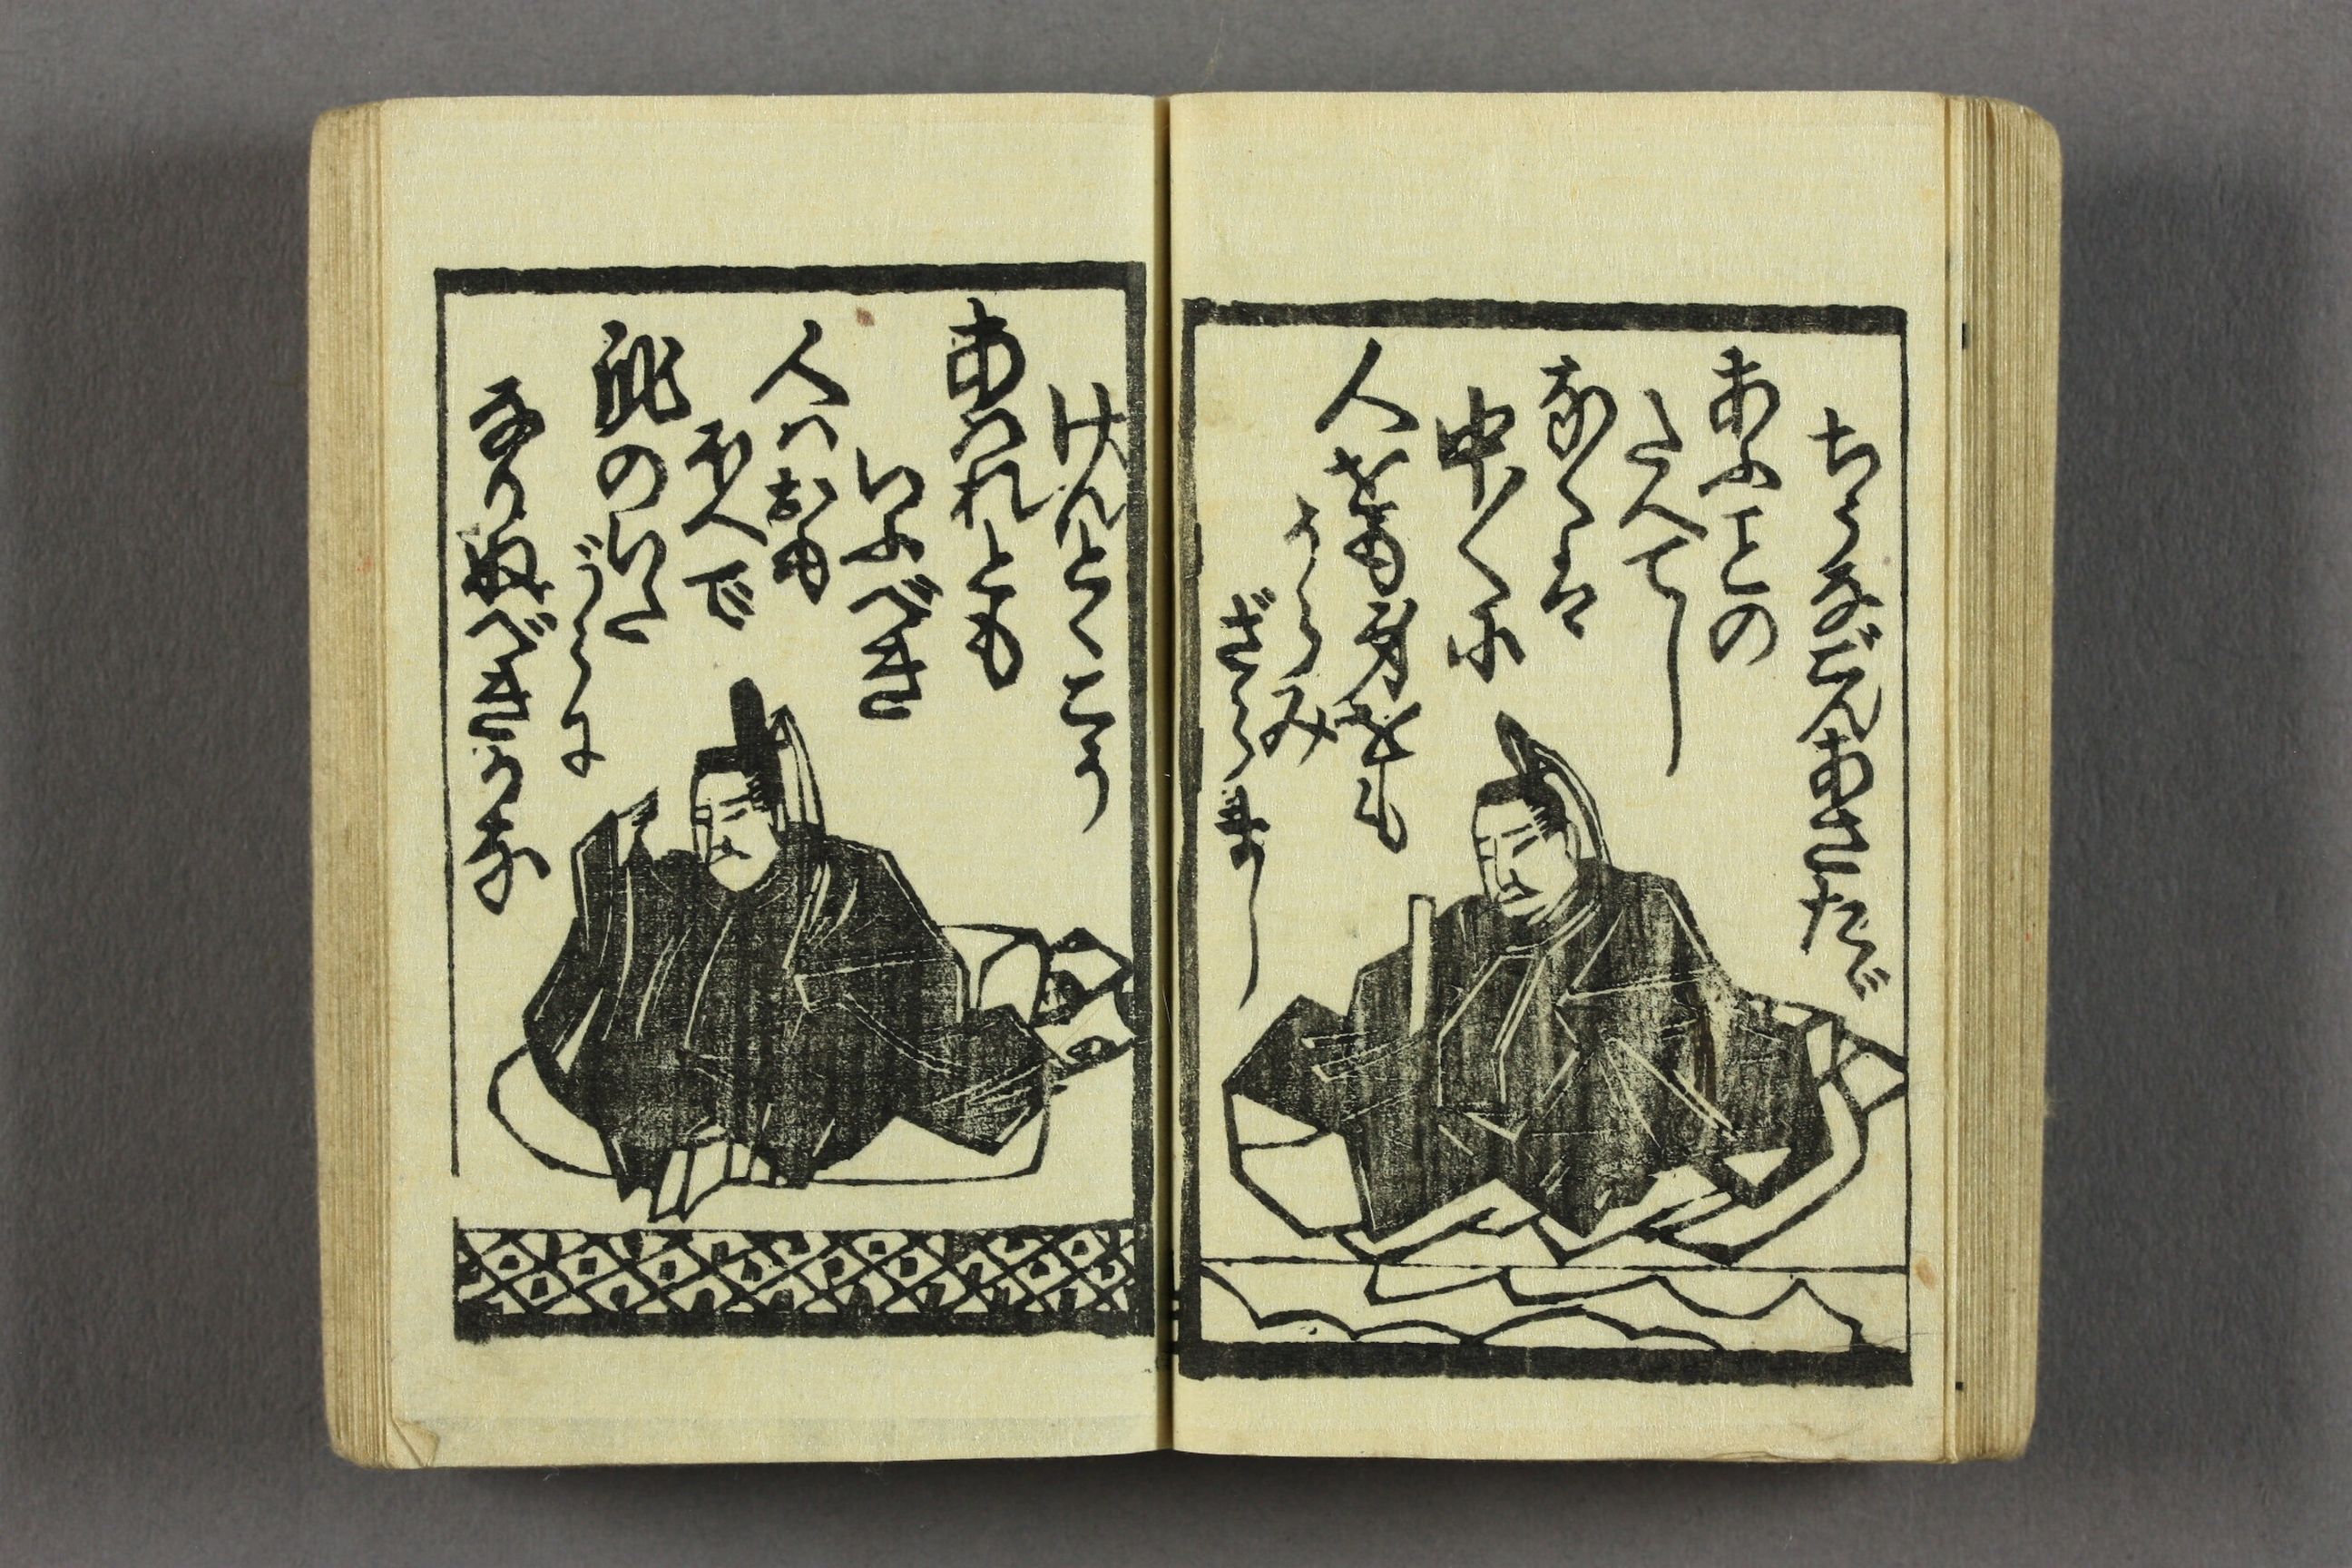 ちうなごんあさたゞ
あふ𪜈の
たえてし
なくハ
中〳〵に
人をも身をも
うらみ
ざらまし
けんとくこう
あハれとも
いふべき
人ハおも
ほえで
躬のいた
づらに
なりぬべきかな